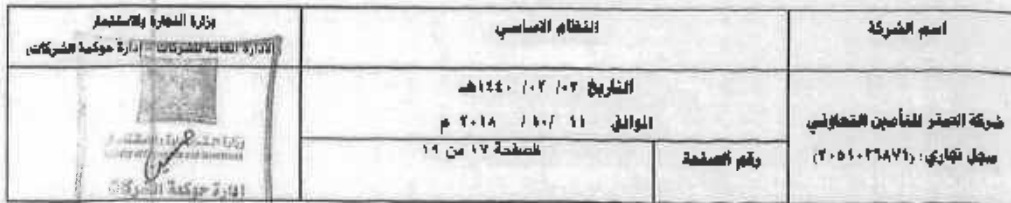 اسم الشركة
النظام الاساسي
وزارة التجارة والاستثمار
الإدارة العامة للشركات - إدارة حوكمة الشركات
شركة الصقر للتأمين التعاوني
سجل تجاري: (٢٠٥١٠٣٦٨٧١)
التاريخ ٠٢/ ٠٢/ ١٤٤٠هـ
الموافق ١١ /١٠/ ٢٠١٨ م
رقم الصفحة
صفحة ١٧ من ١٩
إدارة حوكمة الشركات